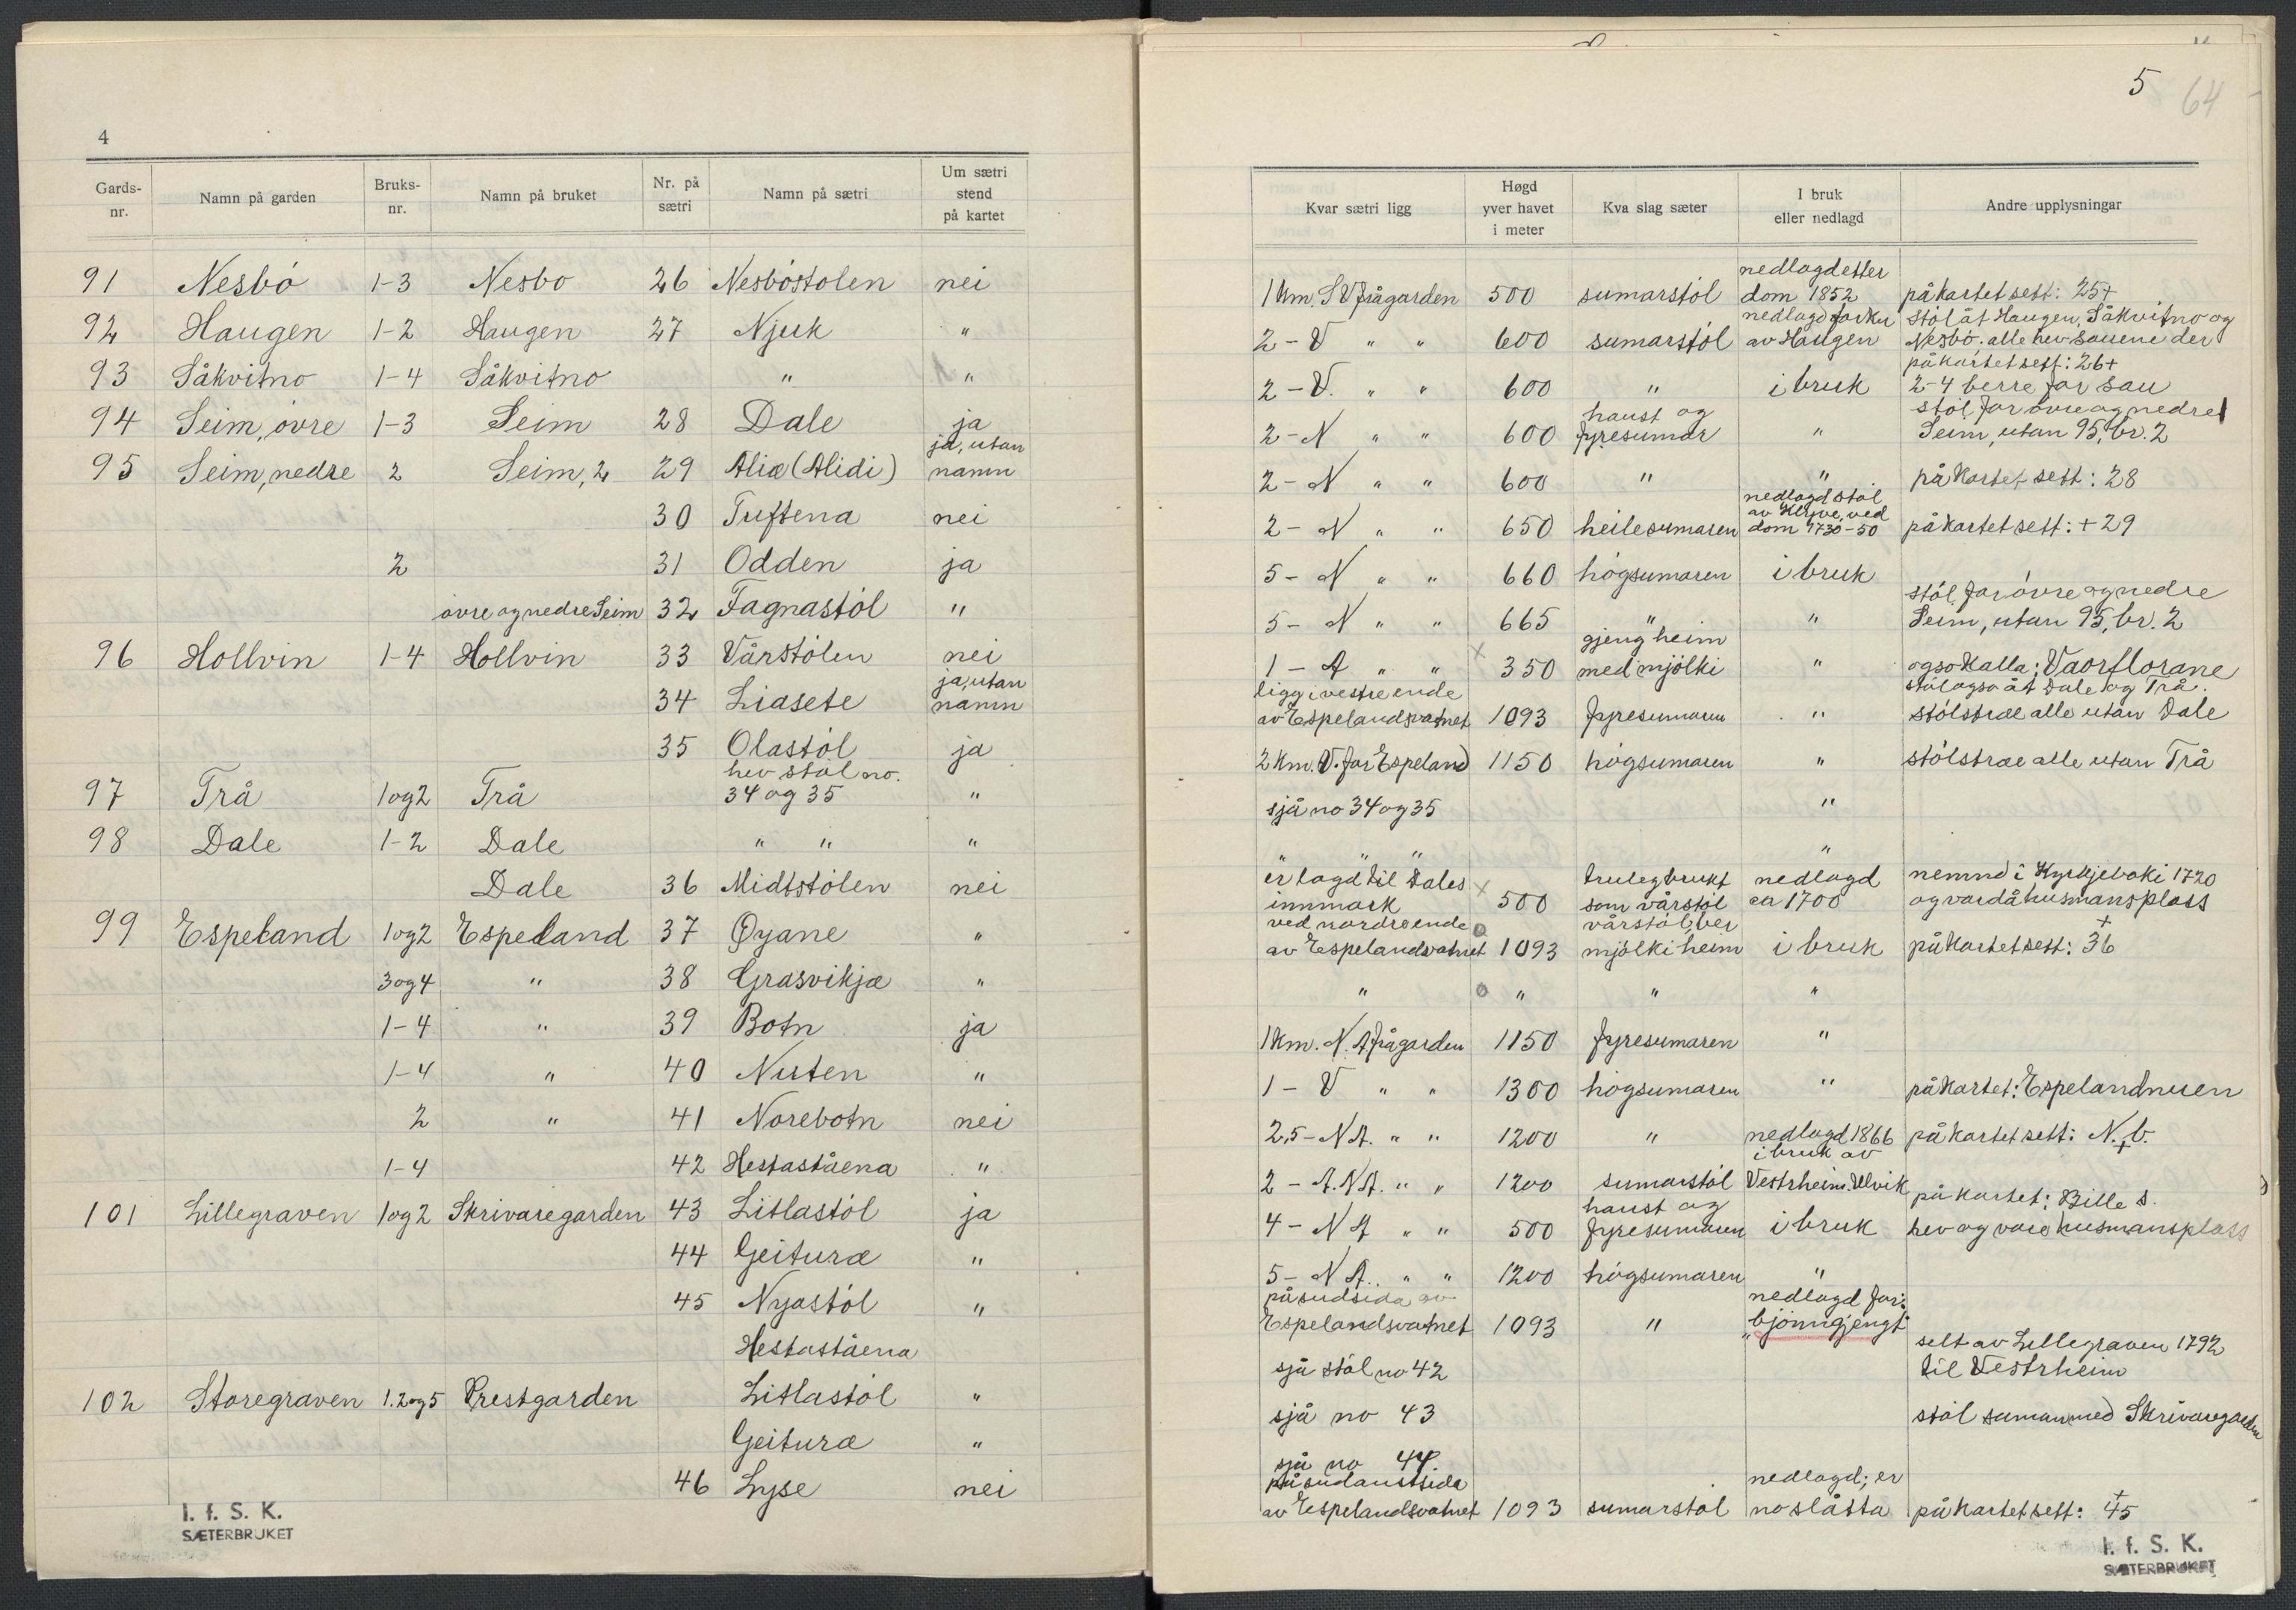 4
Gards-nr. Namn på garden Bruks-nr. Namn på bruket Nr. på sætri Namn på sætri Um sætri stend på kartet
91 Nesbö 1-3 Nesbo 26 Nesböstolen nei
92 Haugen 1-2 Haugen 27 Njuk "
93 Såkvitno 1-4 Såkvitno " "
94 Seim, övre 1-3 Seim 28 Dale ja
95 Seim, nedre 2 Seim, 2 29 Aliæ (Alidi) ja, utan namn
30 Tuftena nei
2 31 Odden ja
övre og nedre Seim 32 Fagnastöl "
96 Hollvin 1-4 Hollvin 33 Vårstölen nei
34 Liasete ja, utan namn
35 Olastöl ja
97 Trå 1og2 Trå hev stöl no. 34 og 35 "
98 Dale 1-2 Dale " " "
Dale 36 Midtstölen nei
99 Espeland 1og2 Espeland 37 Öyane "
3og4 " 38 Grasvikjæ "
1-4 " 39 Botn ja
1-4 " 40 Nuten "
2 " 41 Norebotn nei
1-4 42 Hestaståena "
101 Lillegraven 1og2 Skrivaregarden 43 Litlastöl ja
44 Geituræ "
45 Nyastöl "
Hestaståena
102 Storegraven 1.2og5 Prestgarden Litlastöl "
Geituræ "
46 Lyse nei
I. f. S. K.
SÆTERBRUKET
5
64
Kvar sætri ligg Høgd yver havet i meter Kva slag sæter I bruk eller nedlagd Andre upplysningar
1 km. SV frågarden 500 sumarstöl nedlagd etter dom 1852 på kartet sett: 25+
2 - V " " 600 sumarstöl nedlagd for ku av Haugen stöl åt Haugen, Såkvitno og Nesbö. alle hev sauene der
2 - V. " " 600 " i bruk på kartet sett: 26+ 2-4 berre for sau
2 - N " " 600 haust og fyresumar " stöl for övre og nedre Seim, utan 95, br. 2
2 - N " " 600 " " på kartet sett: 28
2 - N " " 650 heile sumaren nedlagd stöl av ved dom 1730-50 på kartet sett: + 29
5 - N " " 660 högsumaren i bruk
5 - N " " 665 " " stöl for övre og nedre Seim, utan 95, br. 2
1 - A " " x 350 gjeng heim med mjölki " ogso kalla: Vaorflorane
ligg i vestre ende av Espelandsvatnet 1093 fyresumaren " stöl ogso åt Dale og Trå. stölstræ alle utan Dale
2 km. V. for Espeland 1150 högsumaren " stölstræ alle utan Trå
sjå no 34 og 35 "
" " " "
er lagd til Dales innmark x 500 truleg brukt som vårstöl nedlagd ca 1700 nemnd i Kyrkjeboki 1720 og vardå husmansplass
ved nordre ende av Espelandsvatnet o 1093 vårstöl, ber mjölki heim i bruk på kartet sett: + 36
" o " " "
1 km. N.A frågarden 1150 fyresumaren "
1 - V " " 1300 högsumaren " på kartet: Espelandnuen
2,5 - NA. " " 1200 " nedlagd 1866 på kartet sett: N.+b.
2 - A.NA. " " 1200 sumarstöl i bruk av Vestrheim. Ulvik
4 - NA " " 500 haust og fyresumaren i bruk på kartet: Bille s. hev og vore husmansplass
5 - NA. " " 1200 högsumaren "
på sudsida av Espelandsvatnet 1093 " nedlagd for: "björngjengt"
sjå stöl no 42 selt av Lillegraven 1792 til Vestrheim
sjå no 43 stöl saman med Skrivaregarden
sjå no 44.
på sudaustsida av Espelandsvatnet 1093 sumarstöl nedlagd; er no slåtta på kartet sett: + 45
I. f. S. K.
SÆTERBRUKET